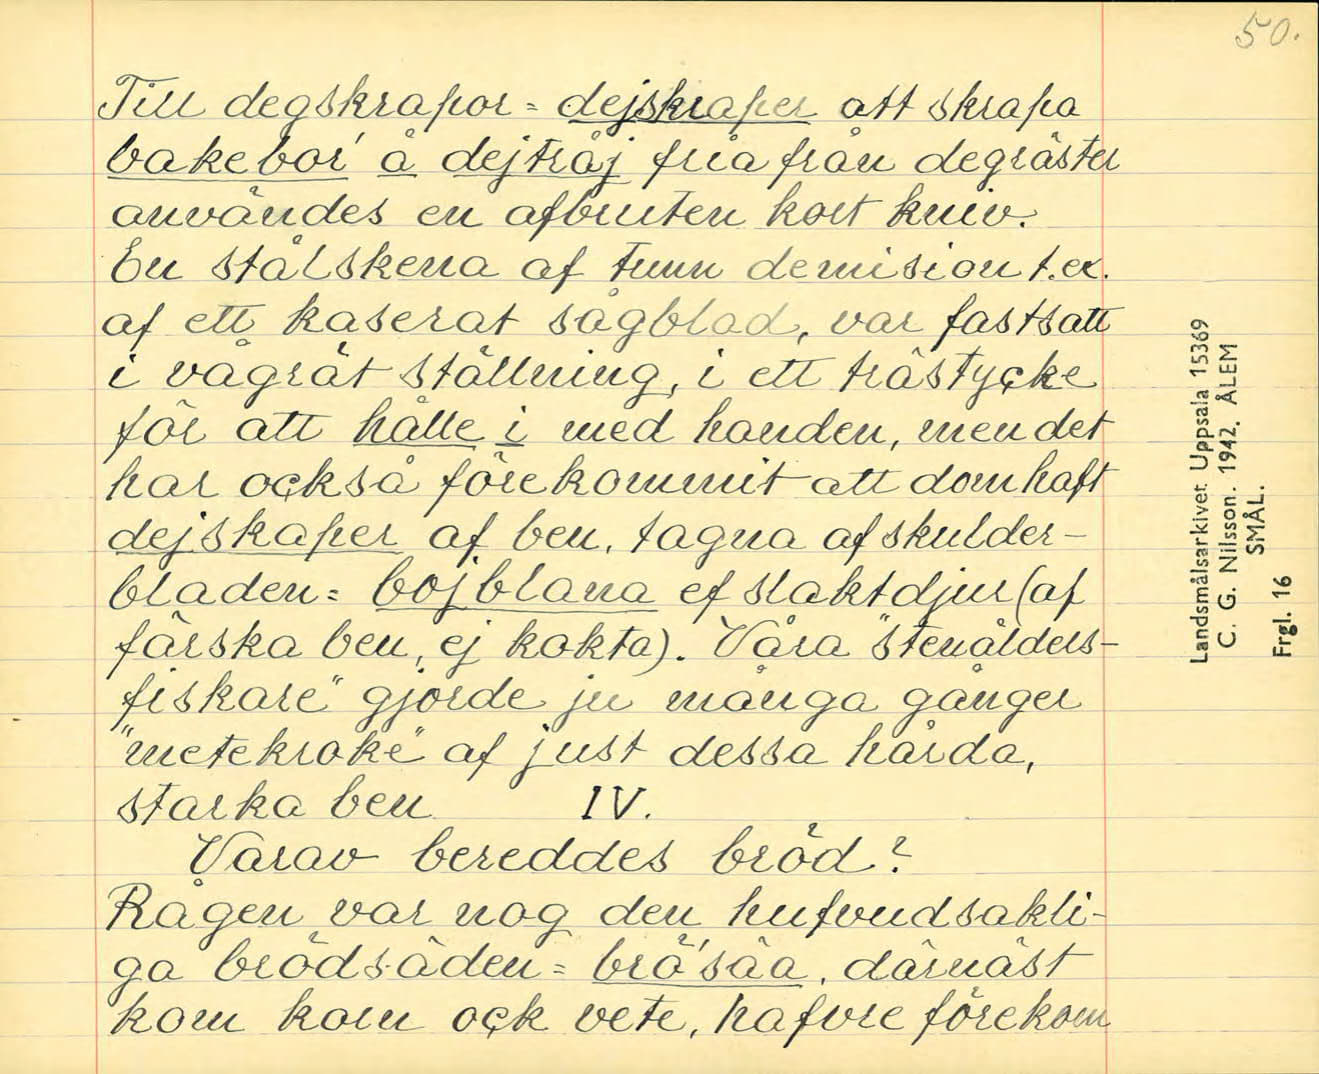 50.
Till degskrapor = dejskraper att skrapa
bakebor' å dejtråj fria från degräster
användes en afbruten kort kniv.
En stålskena af tunn demision t.ex.
af ett kaserat sågblad, var fastsatt
i vågrät ställning, i ett trästycke
för att hålle i med handen, men det
har också förekommit att dom haft
dejskaper af ben, tagna af skulder-
bladen = bojblana ef slaktdjur (af
färska ben, ej kokta). Våra "stenålders-
fiskare" gjorde ju många gånger
"metekroke" af just dessa hårda,
starka ben IV.
Varav bereddes bröd?
Rågen var nog den hufvudsakli-
ga brödsäden = brö'säa, därnäst
kom korn ock vete, hafvre förekom
Landsmålsarkivet Uppsala 15369
C. G. Nilsson. 1942. ÅLEM
SMÅL.
Frgl. 16